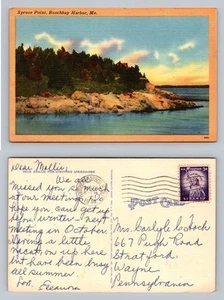 Spruce Point, Boothbay Harbor, Me.
Dear Mollie,
We all
missed you so much
at our meetings. I
hope you said get up
from winter - next
meeting in October.
Having a little
vacation up here
but have been busy
all summer.
Love, Eleanora
POST CARD
Mrs. Carlyle C. Hutch
667 Pugh Road
Stratford,
Wayne,
Pennsylvania